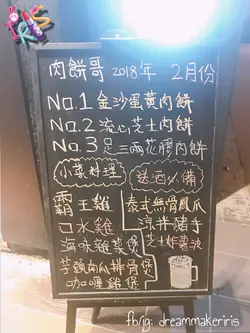 IRIS
肉餅哥 2018年 2月份
No.1 金沙蛋黃肉餅
No.2 流心芝士肉餅
No.3 足三兩花膠肉餅
小菜好理
送酒必備
霸王雞
口水雞
海味雜菜煲
芋頭南瓜排骨煲
咖喱雞煲
泰式無骨鳳爪
涼拌豬手
芝士炸薯波
fb/ig: dreammakeriris